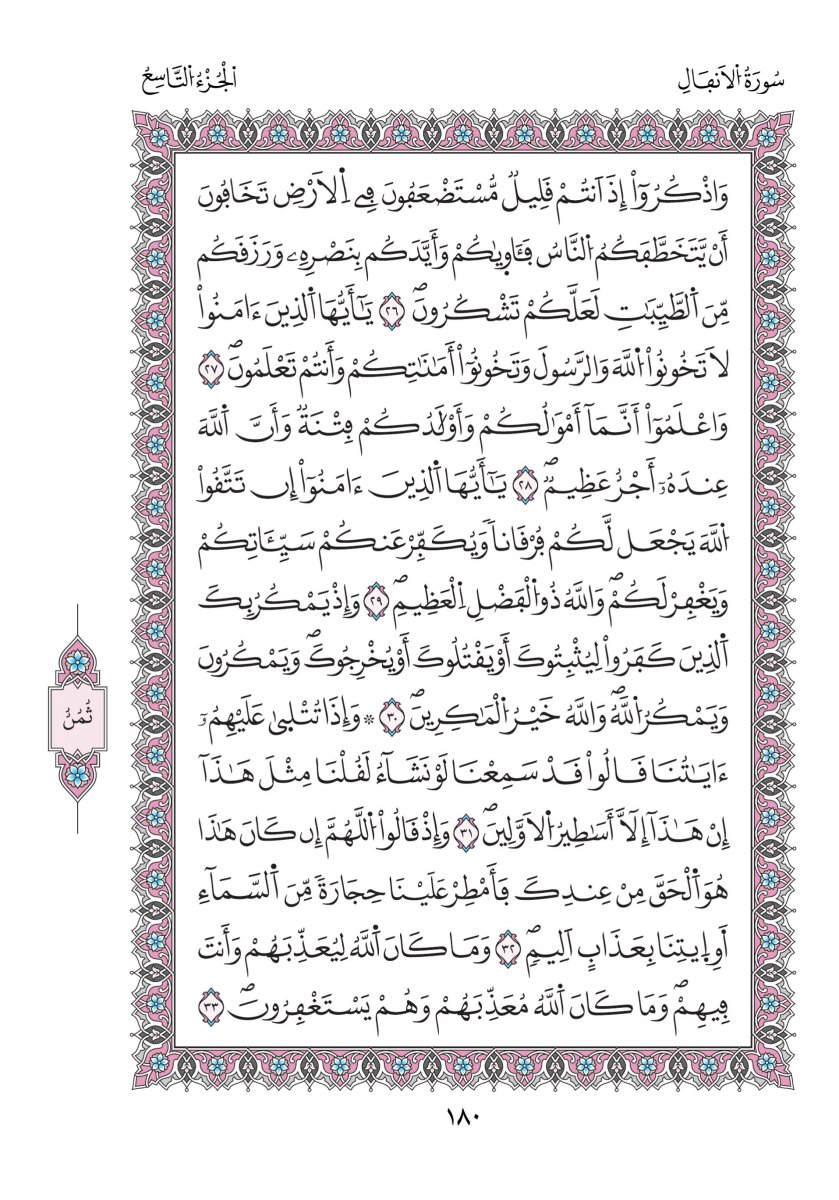 سُورَةُ اُ۬لَانفَالِ
اَ۬لْجُزْءُ اُ۬لتَّاسِعُ
وَاذْكُرُوٓاْ إِذَ اَنتُمْ قَلِيلٞ مُّسْتَضْعَفُونَ فِے اِ۬لَارْضِ تَخَافُونَ
أَنْ يَّتَخَطَّفَكُمُ اُ۬لنَّاسُ فَـَٔاو۪يٰكُمْ وَأَيَّدَكُم بِنَصْرِهِۦ وَرَزَقَكُم
مِّنَ اَ۬لطَّيِّبَٰتِ لَعَلَّكُمْ تَشْكُرُونَۖ ٢٦ يَٰٓأَيُّهَا اَ۬لذِينَ ءَامَنُواْ
لَا تَخُونُواْ اُ۬للَّهَ وَالرَّسُولَ وَتَخُونُوٓاْ أَمَٰنَٰتِكُمْ وَأَنتُمْ تَعْلَمُونَۖ ٢٧
وَاعْلَمُوٓاْ أَنَّمَآ أَمْوَٰلُكُمْ وَأَوْلَٰدُكُمْ فِتْنَةٞ وَأَنَّ اَ۬للَّهَ
عِندَهُۥٓ أَجْرٌ عَظِيمٞۖ ٢٨ يَٰٓأَيُّهَا اَ۬لذِينَ ءَامَنُوٓاْ إِن تَتَّقُواْ
اُ۬للَّهَ يَجْعَل لَّكُمْ فُرْقَاناٗ وَيُكَفِّرْ عَنكُمْ سَيِّـَٔاتِكُمْ
وَيَغْفِرْ لَكُمْۖ وَاللَّهُ ذُو اُ۬لْفَضْلِ اِ۬لْعَظِيمِۖ ٢٩ وَإِذْ يَمْكُرُ بِكَ
اَ۬لذِينَ كَفَرُواْ لِيُثْبِتُوكَ أَوْ يَقْتُلُوكَ أَوْ يُخْرِجُوكَۖ وَيَمْكُرُونَ
وَيَمْكُرُ اُ۬للَّهُۖ وَاللَّهُ خَيْرُ اُ۬لْمَٰكِرِينَۖ ٣٠ ۞ وَإِذَا تُتْل۪يٰ عَلَيْهِمُۥٓ
ءَايَٰتُنَا قَالُواْ قَدْ سَمِعْنَا لَوْ نَشَآءُ لَقُلْنَا مِثْلَ هَٰذَآ
إِنْ هَٰذَآ إِلَّآ أَسَٰطِيرُ اُ۬لَاوَّلِينَۖ ٣١ وَإِذْ قَالُواْ اُ۬للَّهُمَّ إِن كَانَ هَٰذَا
هُوَ اَ۬لْحَقَّ مِنْ عِندِكَ فَأَمْطِرْ عَلَيْنَا حِجَارَةٗ مِّنَ اَ۬لسَّمَآءِ
أَوِ اِ۪يتِنَا بِعَذَابٍ اَلِيمٖۖ ٣٢ وَمَا كَانَ اَ۬للَّهُ لِيُعَذِّبَهُمْ وَأَنتَ
فِيهِمْۖ وَمَا كَانَ اَ۬للَّهُ مُعَذِّبَهُمْ وَهُمْ يَسْتَغْفِرُونَۖ ٣٣
ثُمُنُ
١٨٠